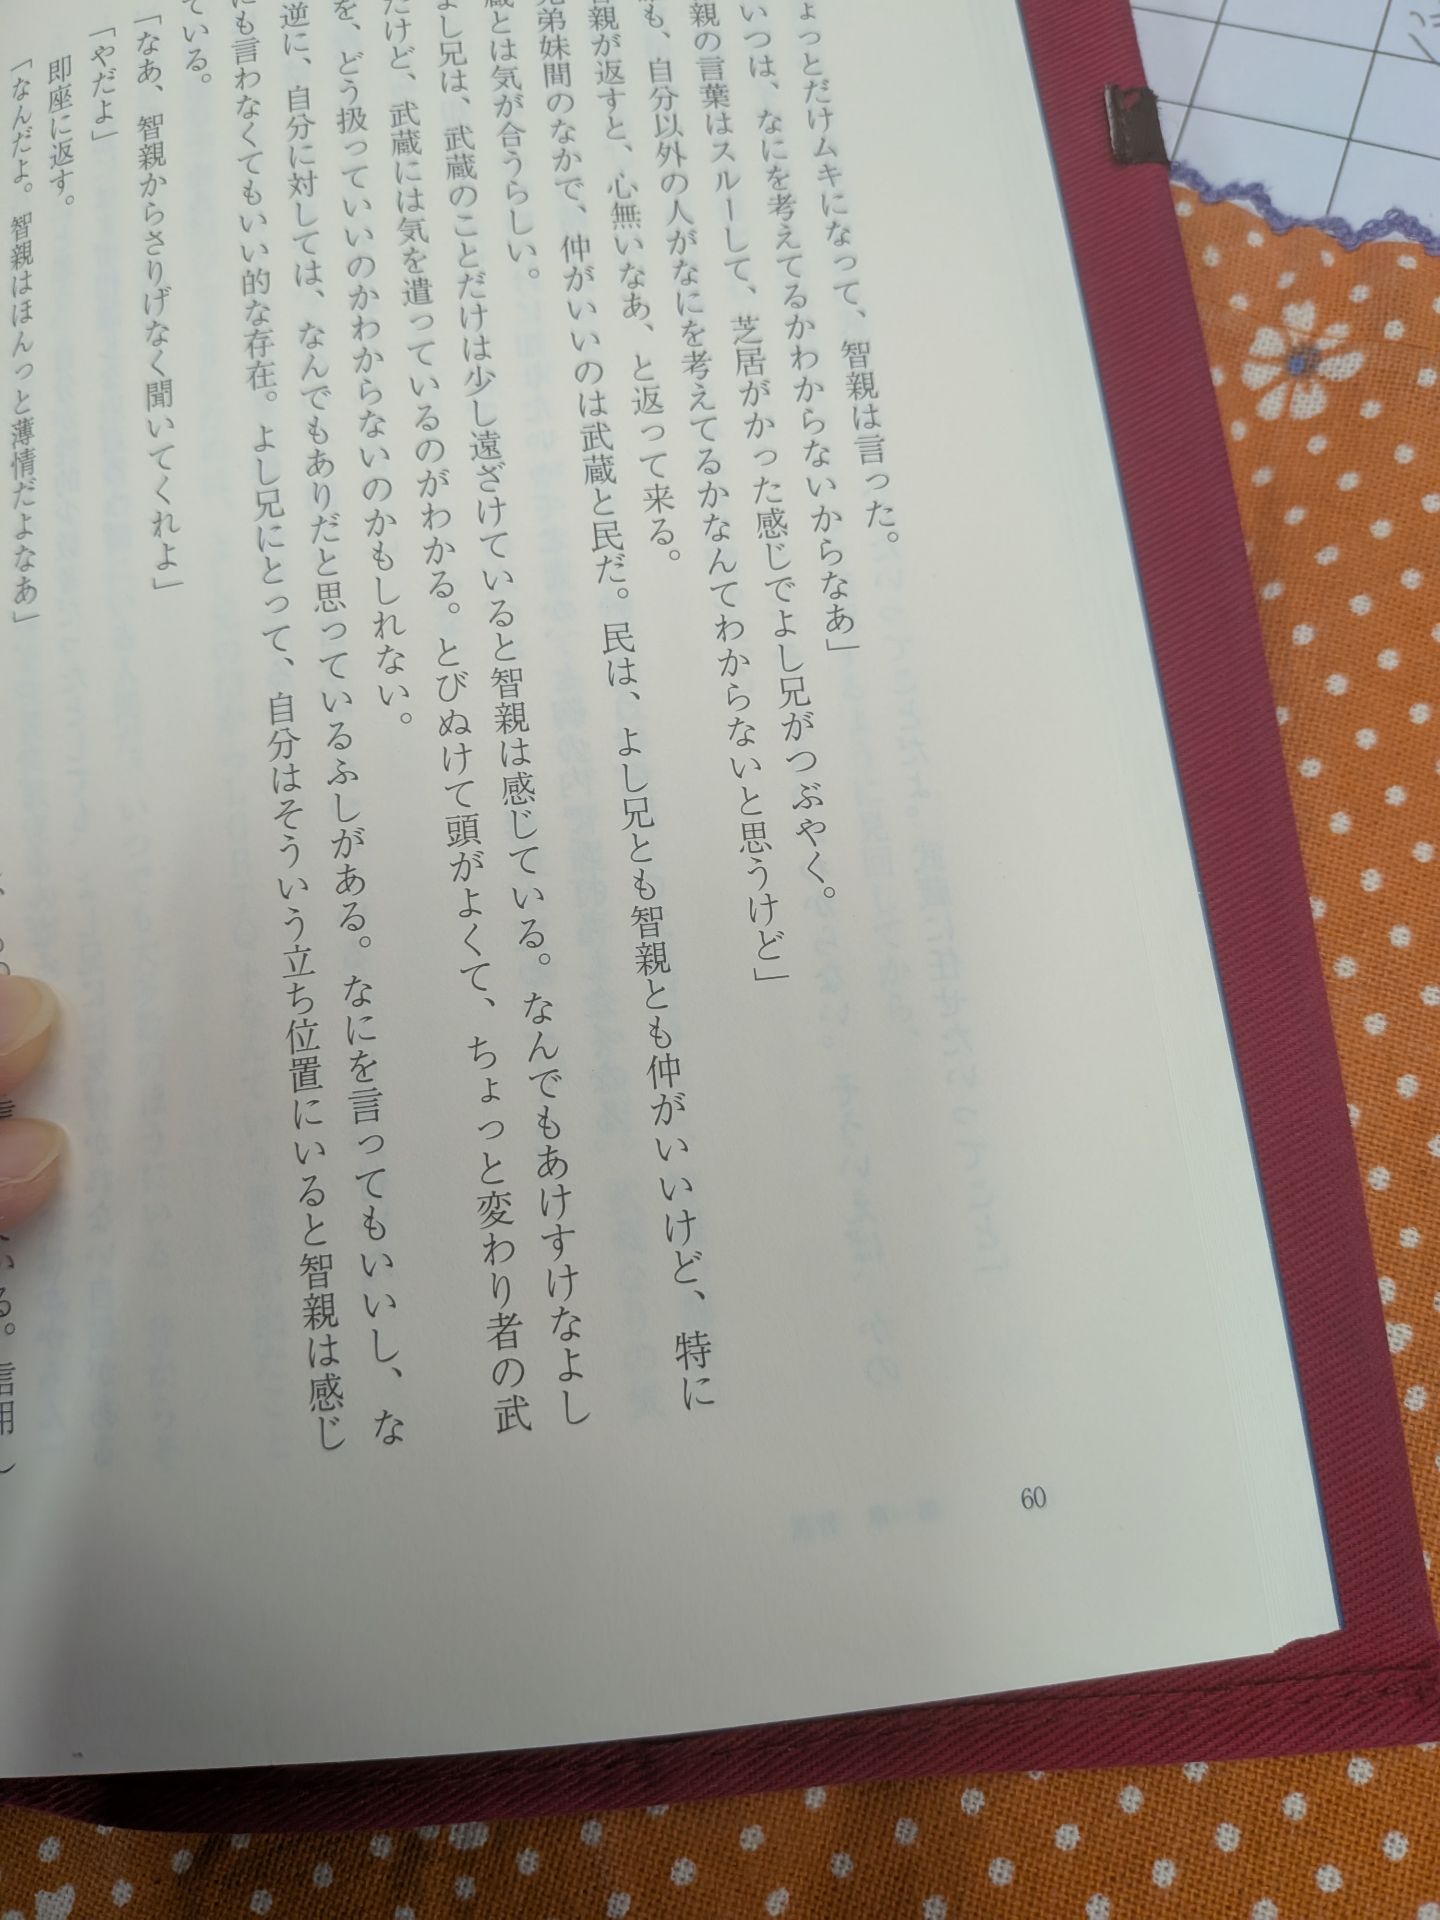 ょっとだけムキになって、智親は言った。
いつは、なにを考えてるかわからないからなあ」
親の言葉はスルーして、芝居がかった感じでよし兄がつぶやく。
も、自分以外の人がなにを考えてるかなんてわからないと思うけど」
親が返すと、心無いなあ、と返って来る。
兄弟妹間のなかで、仲がいいのは武蔵と民だ。民は、よし兄とも智親とも仲がいいけど、特に
蔵とは気が合うらしい。
よし兄は、武蔵のことだけは少し遠ざけていると智親は感じている。なんでもあけすけなよし
だけど、武蔵には気を遣っているのがわかる。とびぬけて頭がよくて、ちょっと変わり者の武
を、どう扱っていいのかわからないのかもしれない。
逆に、自分に対しては、なんでもありだと思っているふしがある。なにを言ってもいいし、な
にも言わなくてもいい的な存在。よし兄にとって、自分はそういう立ち位置にいると智親は感じ
ている。
「なあ、智親からさりげなく聞いてくれよ」
「やだよ」
即座に返す。
「なんだよ。智親はほんっと薄情だよなあ」
いる。信用し
60